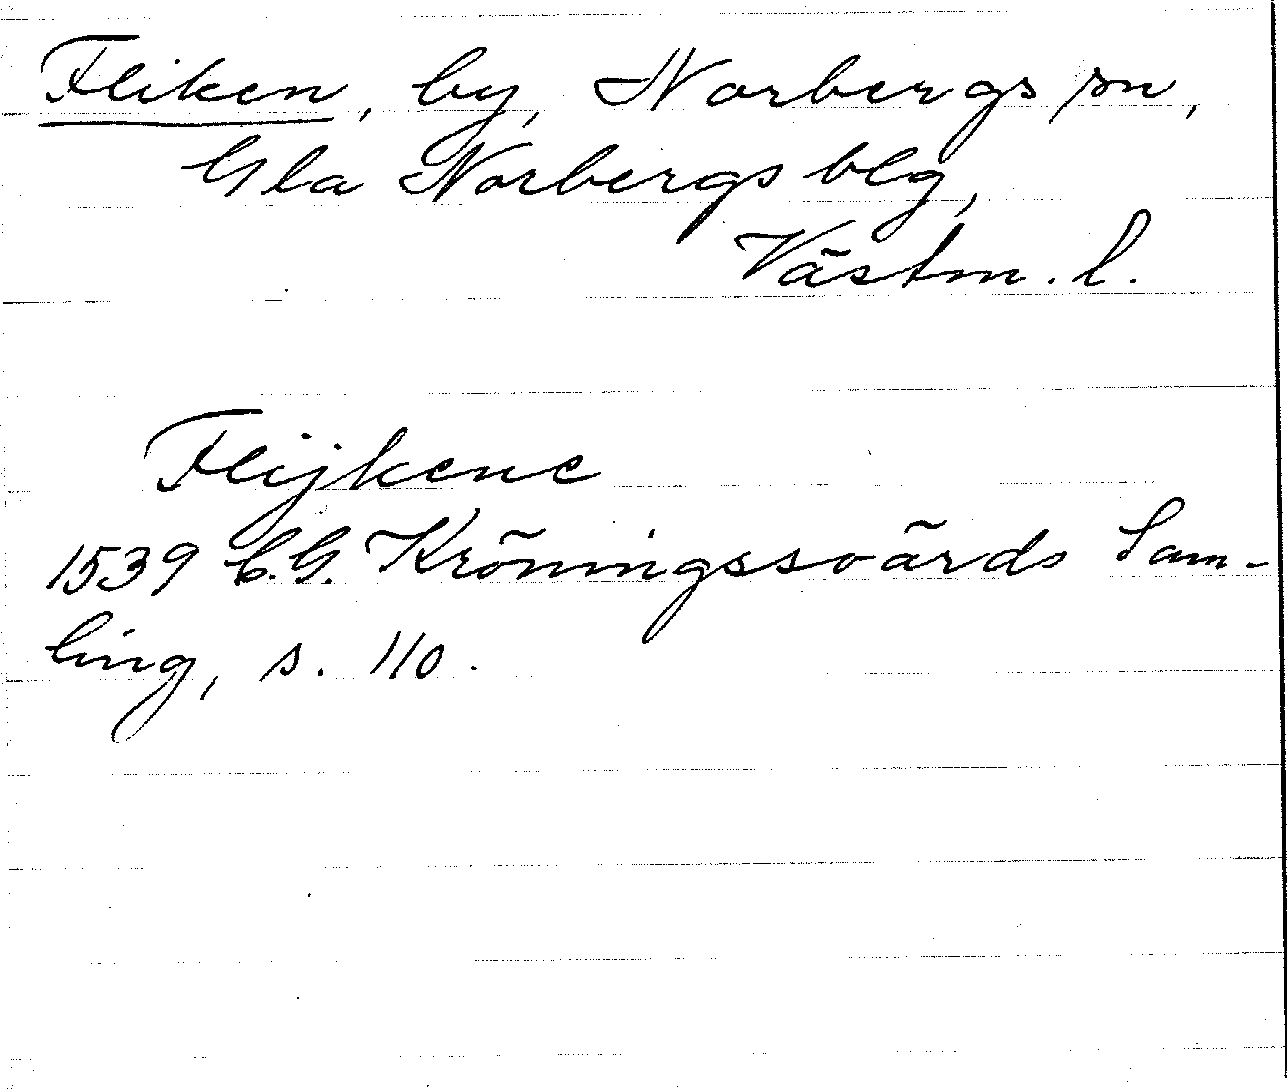 Fliken, by, Norbergs sn,
Gla Norbergs blg,
Västm. l.
Flijkene
1539 C.G. Kröningssvärds Sam-
ling, s. 110.